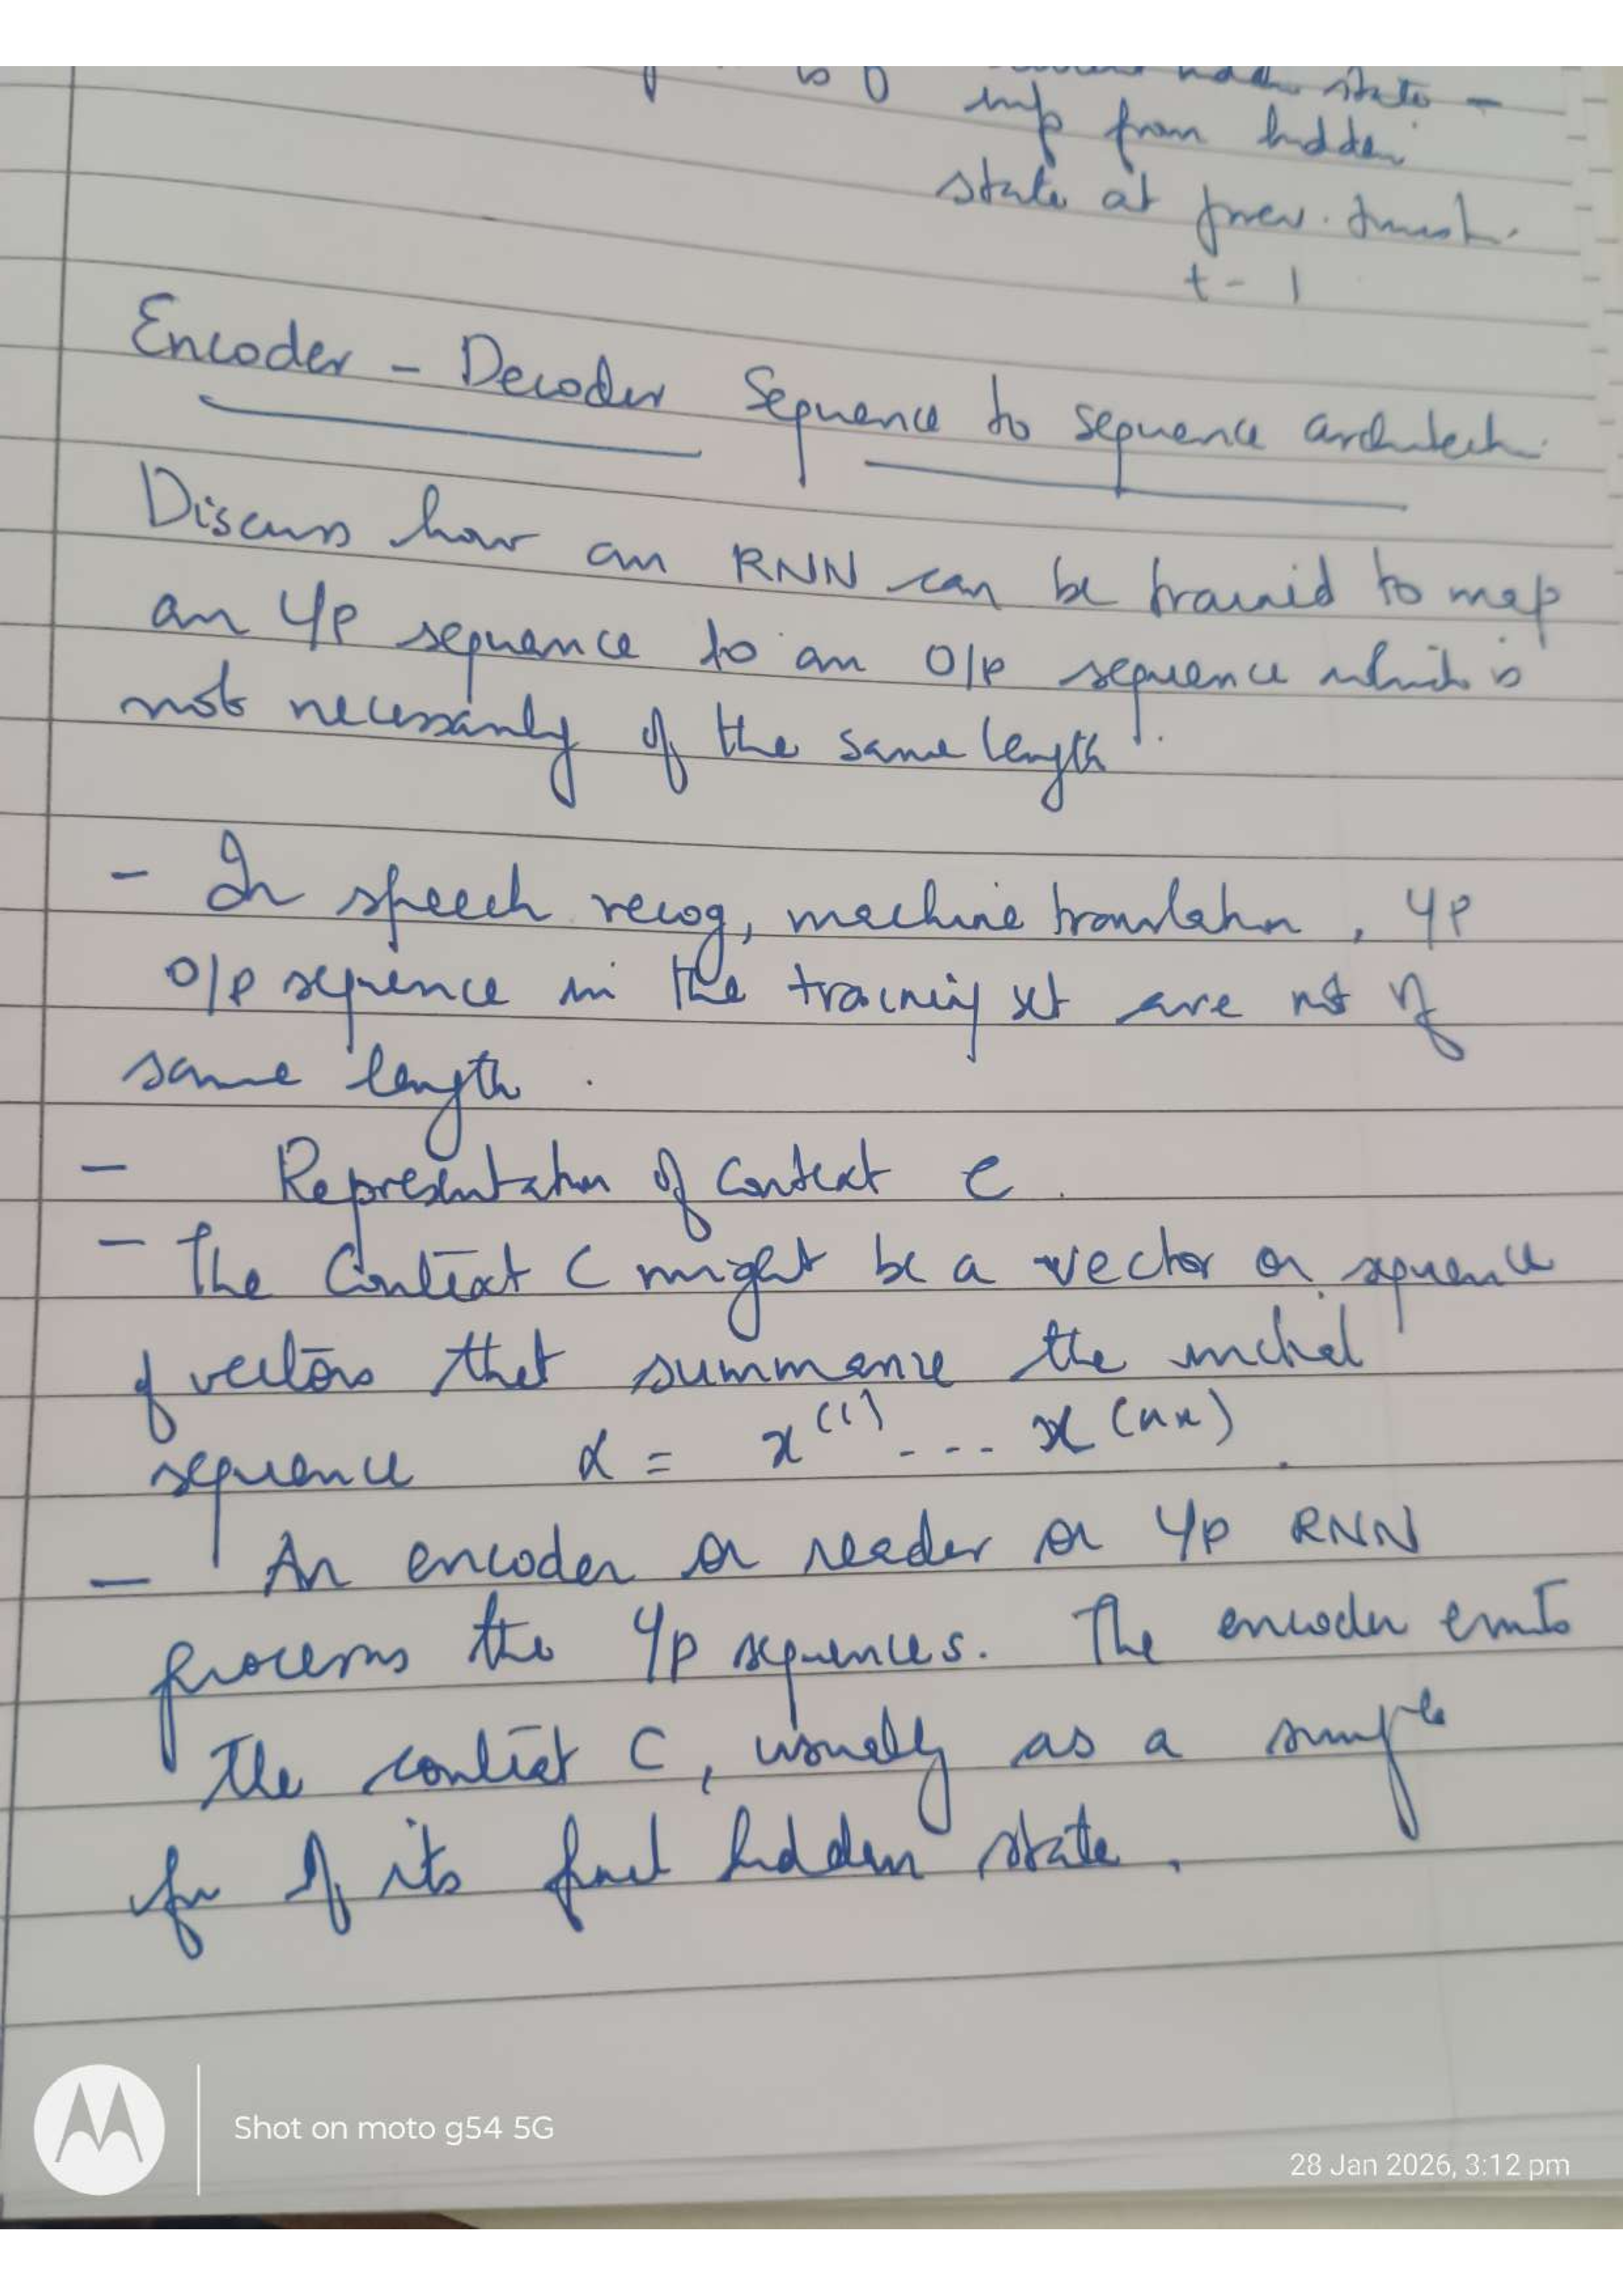 state -
inf from hidden
state at prev.
t - 1
Encoder - Decoder Sequence to sequence architect.
Discuss how an RNN can be trained to map
an I/P sequence to an O/P sequence which is
not necessarily of the same length.
- In speech recog, machine translation, I/P
O/P sequence in the training set are not of
same length.
- Representation of Context C.
- The Context C might be a vector or sequence
of vectors that summarize the initial
sequence x = x^(1) --- x^(nx).
- An encoder or reader or I/P RNN
process the I/P sequences. The encoder emits
the context C, usually as a simple
fn of its final hidden state.
Shot on moto g54 5G
28 Jan 2026, 3:12 pm